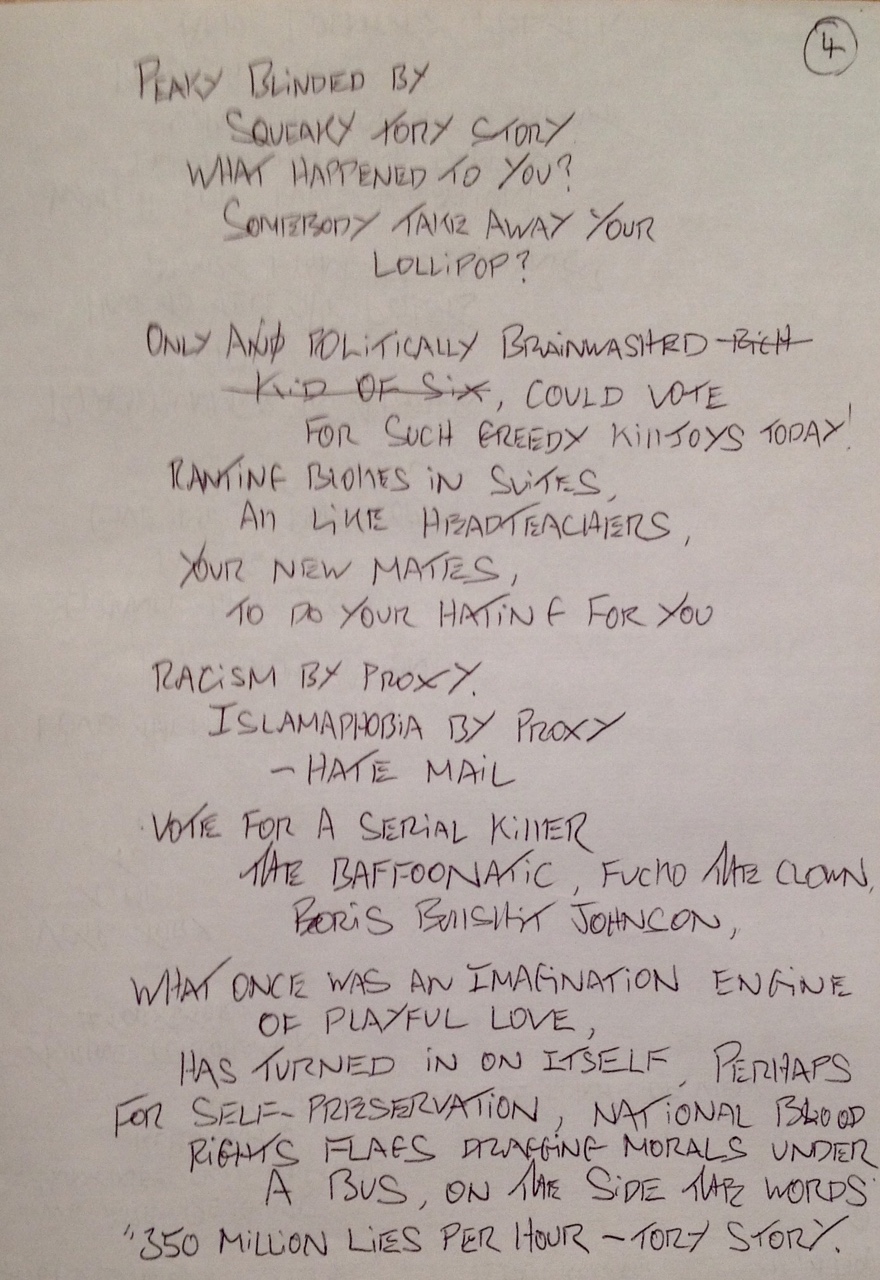 4
PEAKY BLINDED BY
SQUEAKY TORY STORY
WHAT HAPPENED TO YOU?
SOMEBODY TAKE AWAY YOUR
LOLLIPOP?
ONLY AND POLITICALLY BRAINWASHED RICH
KID OF SIX, COULD VOTE
FOR SUCH GREEDY KILLJOYS TODAY!
RANTING BLOKES IN SUITES,
All LIKE HEADTEACHERS,
YOUR NEW MATES,
TO DO YOUR HATING FOR YOU
RACISM BY PROXY.
ISLAMAPHOBIA BY PROXY
- HATE MAIL
VOTE FOR A SERIAL KILLER
THE BAFFOONATIC, FUCKO THE CLOWN,
BORIS BULLSHIT JOHNSON,
WHAT ONCE WAS AN IMAGINATION ENGINE
OF PLAYFUL LOVE,
HAS TURNED IN ON ITSELF, PERHAPS
FOR SELF-PRESERVATION, NATIONAL BLOOD
RIGHTS FLAGS DRAGGING MORALS UNDER
A BUS, ON THE SIDE THE WORDS
"350 MILLION LIES PER HOUR - TORY STORY.